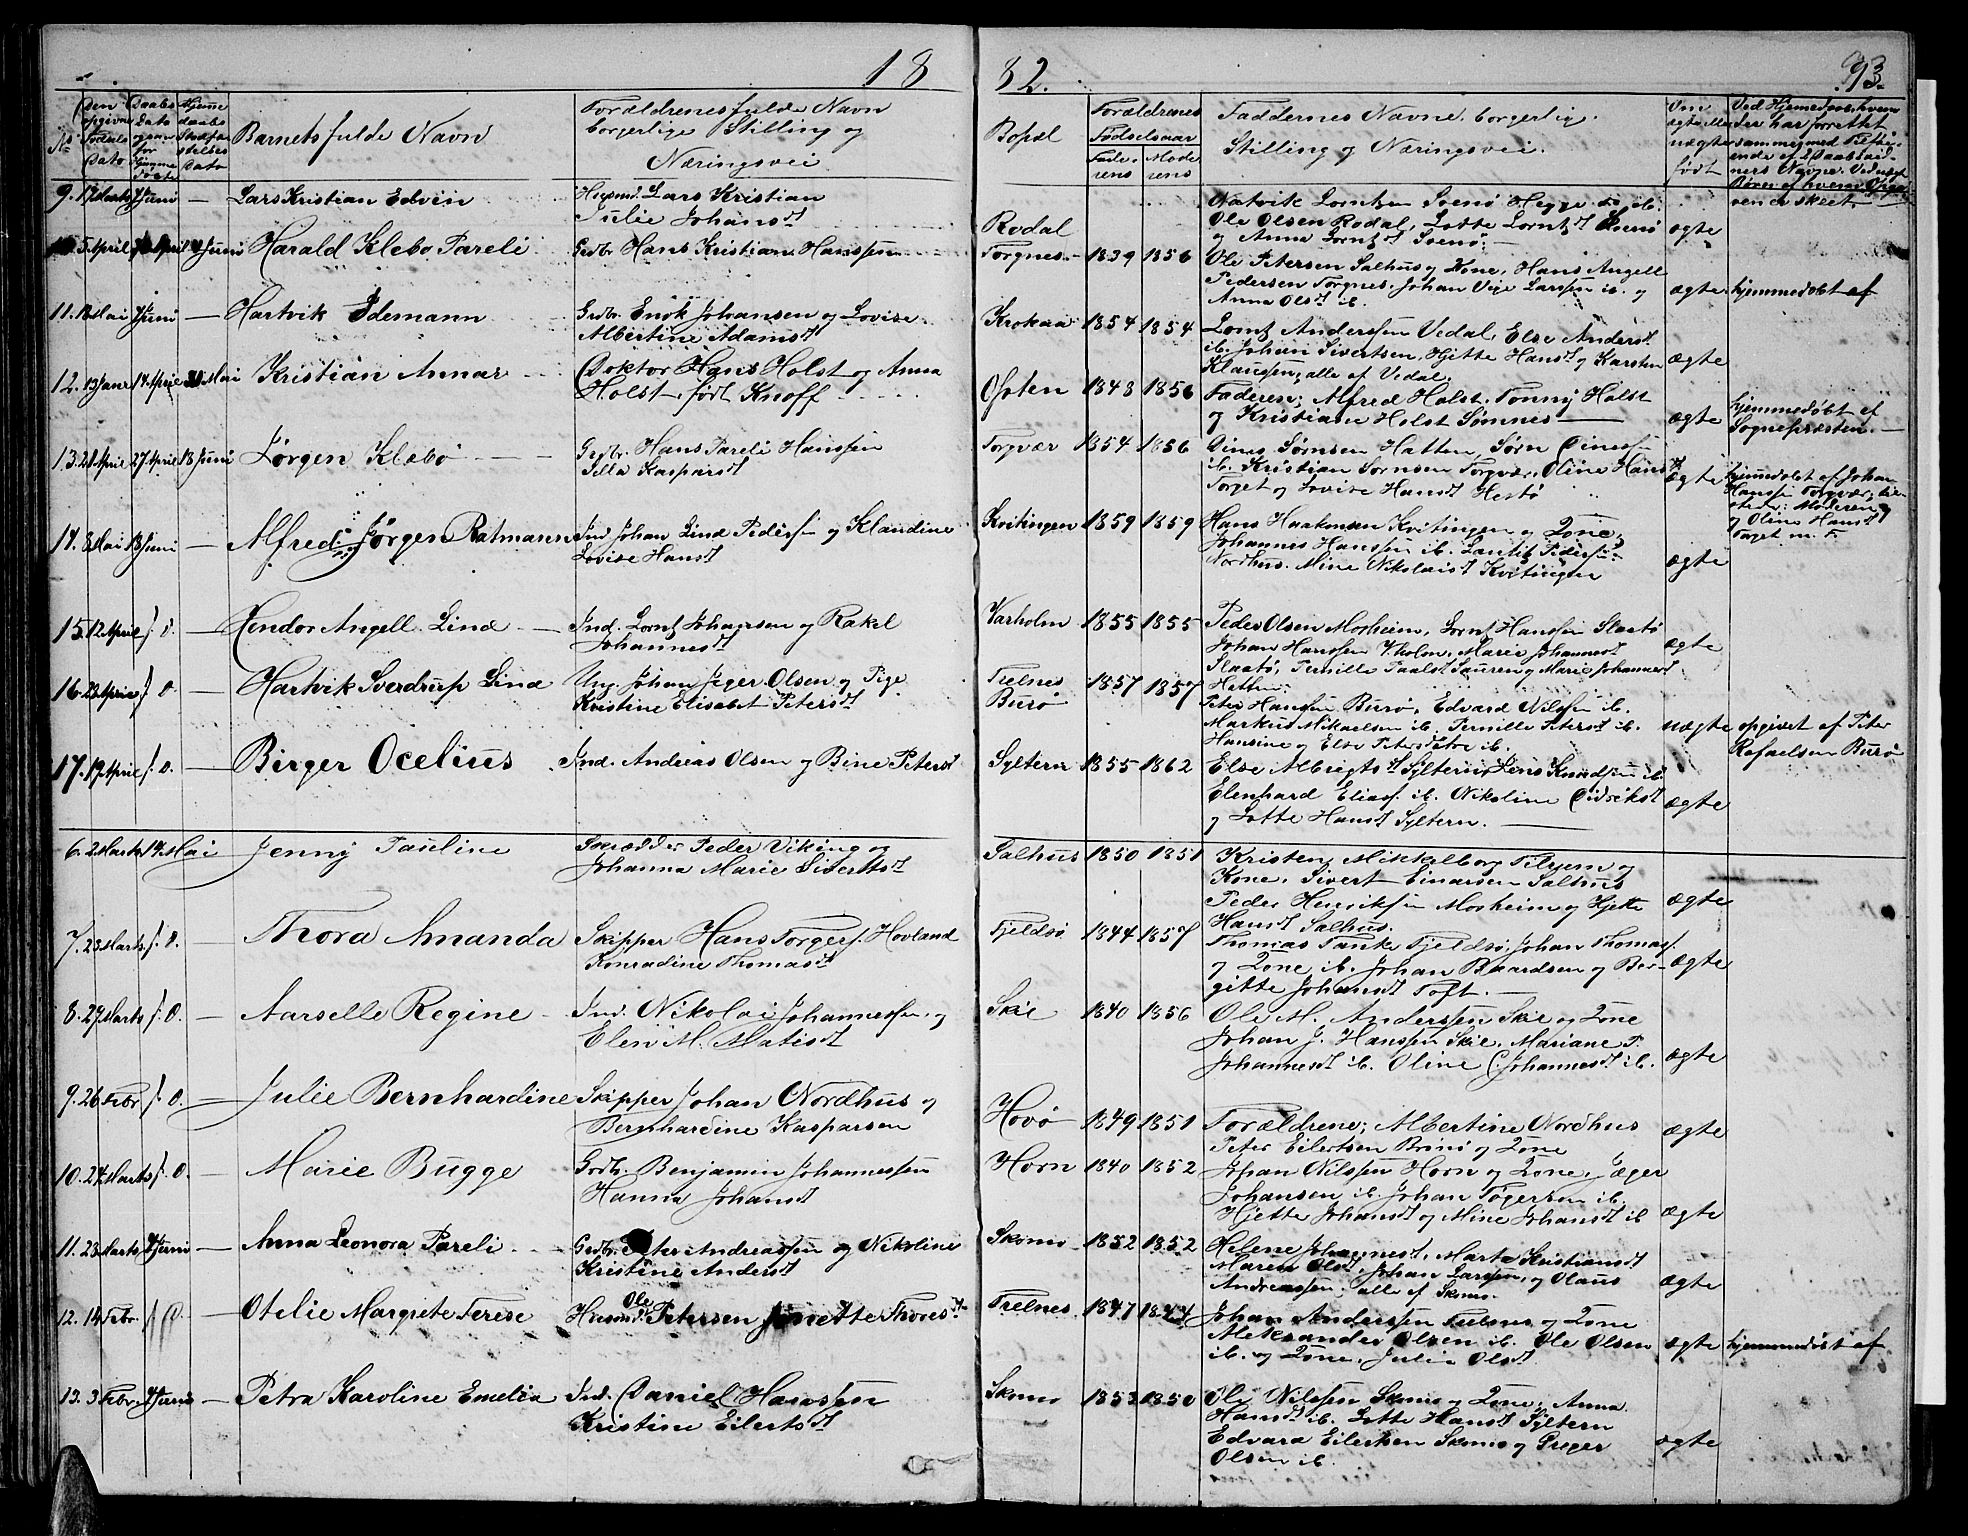 18 82. 93.
No Den opgivne Fødsels Dato Daabs Dato ogsaa for Hjemme døbte Hjemme daabs Stadfæstelses Dato Barnets fulde Navn Forældrenes fulde Navn borgerlige Stilling og Næringsvei Bopæl Forældrenes Fødselsaar Faderens Moderens Faddernes Navne, borgerlig Stilling og Næringsvei. Om ægte eller uægte født
9. 17 Marts 7 Juni — Lars Kristian Edvin
Husmd. Lars Kristian
Julie Johansdt
Rodal
Ole Olsen Rodal, Lotte Lorntzdt Svenø
og Anna Lorntzdt Svenø.
ægte
5 April 4 Juni Harald Klebo Pareli
Grdbr. Hans Kristian Hanssen
Torgnes 1839 1856
Ole Petersen Salhus og Kone, Hans Angell
Pedersen Torgnes, Johan Vige Larssen ib. og
Anna Olsdt ib.
ægte hjemmedøbt af
11. 18 Mai 7 Juni — Hartvik Edemann
Grdbr. Enok Johansen og Lovise
Albertine Adamsdt
Krokaa 1854 1854
Lorntz Anderssen Vedal, Else Andersdt
ib. Johan Sivertsen, Hjette Hansdt og Karsten
Klaussen, alle af Vedal.
ægte
12. 13 Janr 14 April Mai Kristian Annar
Doktor Hans Holst og Anna
Holst, født Knoff
Opten 1848 1856
Faderen, Alfred Holst, Tonny Holst
og Kristiane Holst Sømnes —
ægte hjemmedøbt af
Sognepræsten. —
13. 21 April 27 April 18 Juni Jørgen Klebø
Grdbr. Hans Pareli Hanssen
Silla Kaspersdt
Torgvær 1854 1856
Dines Sørnsen Hatten, Sørn Diness.
ib. Kristian Sørnsen Torgvær, Oline Hansdt
Torget og Lovise Hansdt Hestø
ægte hjemmedøbt af Johan
Hanssen Torgvær,
Moderen og
og Oline Hansdt
Torget m. f.
14. 8 Mai 18 Juni — Alfred Jørgen Ratmann
Ind. Johan Lind Pederssen og Klandine
Lovise Hansdt
Kvitingen 1859 1859
Hans Haakonsen Kvitingen og Kone,
Johannes Hanssen ib. Lautitz Pederssen
Nordhus. Mine Nikolaisdt Kvitingen
ægte
15. 12 April f. d. — Hendor Angell Lind
Ind. Lorntz Johansen og Rakel
Johannesdt
Varholm 1855 1855
Peder Olsen Mosheim, Lorntz Hanssen Slaatø
Johan Hanssen Vholm, Marie Johannesdt
Slaatø, Pernille Paalsdt Sauren og Marie Johannesdt
Hatten.
ægte
16. 23 April f. d. — Hartvik Sverdrup Lind
Ung. Johan Jeger Olsen og Pige
Kristine Elisabet Petersdt
Trelnes
Burø 1857 1857
Peter Hanssen Burø, Edvard Nilssen ib.
Markus Mikaelsen ib. Pernille Petersdt ib.
Hansine og Else Petersdtre ib.
uægte opgivet af Peter
Rafaelsen Burø
17. 19 April f. d. Birger Ocelius
Ind. Andreas Olsen og Bine Petersdt
Syltern 1855 1862
Else Albrigtsdt Syltern, Jens Knudssen ib.
Elenhard Eliass. ib. Nikoline Didriksdt
og Lotte Hansdt Syltern. —
ægte
6. 2 Marts 14 Mai Jenny Pauline
Skrædder Peder Viking og
Johanna Marie Sivertsdt
Salhus 1850 1851
Kristen Mikkelborg Tilrem og
Kone. Sivert Einarsen Salhus
Peder Henriksen Mosheim og Hjette
Hansdt Salhus.
ægte
7. 23 Marts f. d. Thora Amanda
Skipper Hans Torgerss. Hovland
Konradine Thomasdt
Fjeldsø 1844 1857
Thomas Tanke Fjeldsø, Johan Thomass.
og Kone ib. Johan Baardsen og Ber-
gitte Johansdt Toft. —
ægte
8. 27 Marts f. d. — Aarselle Regine
Ind. Nikolai Johannessen og
Elen M. Matisdt
Skie 1840 1856
Ole M. Anderssen Skie og Kone
Johan J. Hanssen Skie, Mariane P.
Johannesdt ib. Oline C. Johannesdt ib.
ægte
9. 26 Febr f. d. — Julie Bernhardine
Skipper Johan Nordhus og
Bernhardine Kaspersen
Hovø 1849 1851
Forældrene, Albertine Nordhus
Peter Eilertsen Brønø og Kone
ægte
10. 24 Marts f. d. — Marie Bugge
Grdbr. Benjamin Johannessen
Hanna Johansdt
Horn 1840 1852
Johan Nilssen Horn og Kone, Jæger
Johansen ib. Johan Tøgersen ib.
Hjette Johansdt og Mine Johansdt ib
ægte
11. 23 Marts 4 Juni — Anna Leonora Pareli
Grdbr. Peter Andreassen og Nikoline
Kristine Andersdt
Skomo 1852 1852
Helene Johannesdt, Marta Kristiansdt
Maren Olsdt, Johan Larssen, og Olaus
Andreassen, alle af Skomo.
ægte
12. 14 Febr. f. d. — Otelie Margrete Terese
Husmd. Ole Petersen Thoresdt
Trelnes 1847 1844
Johan Anderssen Trelnes og Kone
Aleksander Olsen ib. Ole Olsen
ib. og Kone, Julie Olsdt.
ægte hjemmedøbt af
13. 3 Febr 4 Juni — Petra Karoline Emelia
Ind. Daniel Hanssen
Kristine Eilertsdt
Skomo 1853 1850
Ole Nilssen Skomo og Kone, Anna
Hansdt ib. Lotte Hansdt Syltern
Edvard Eilertsen Skomo og Preger
Olsen ib.
ægte